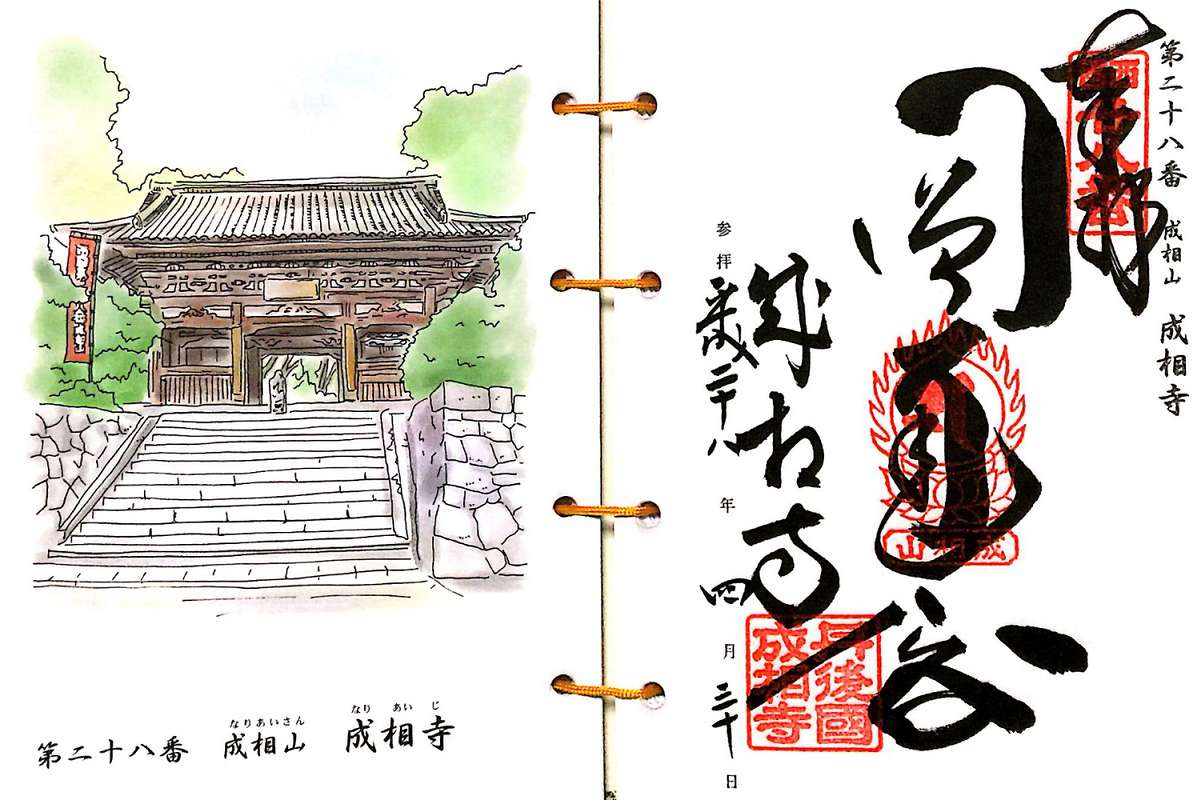 なりあいさん なり あい じ
第二十八番 成相山 成相寺
第二十八番 成相山 成相寺
奉拝
成相山
成相寺
参拝 平成二十八年四月三十日
丹後國
成相寺